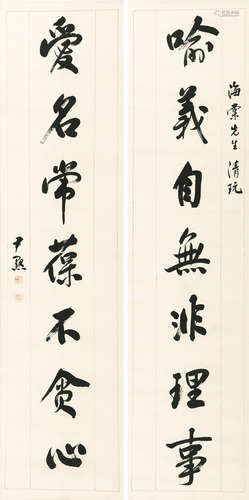 海棠先生清玩
喻義自無非理事
愛名常葆不貪心
尹默